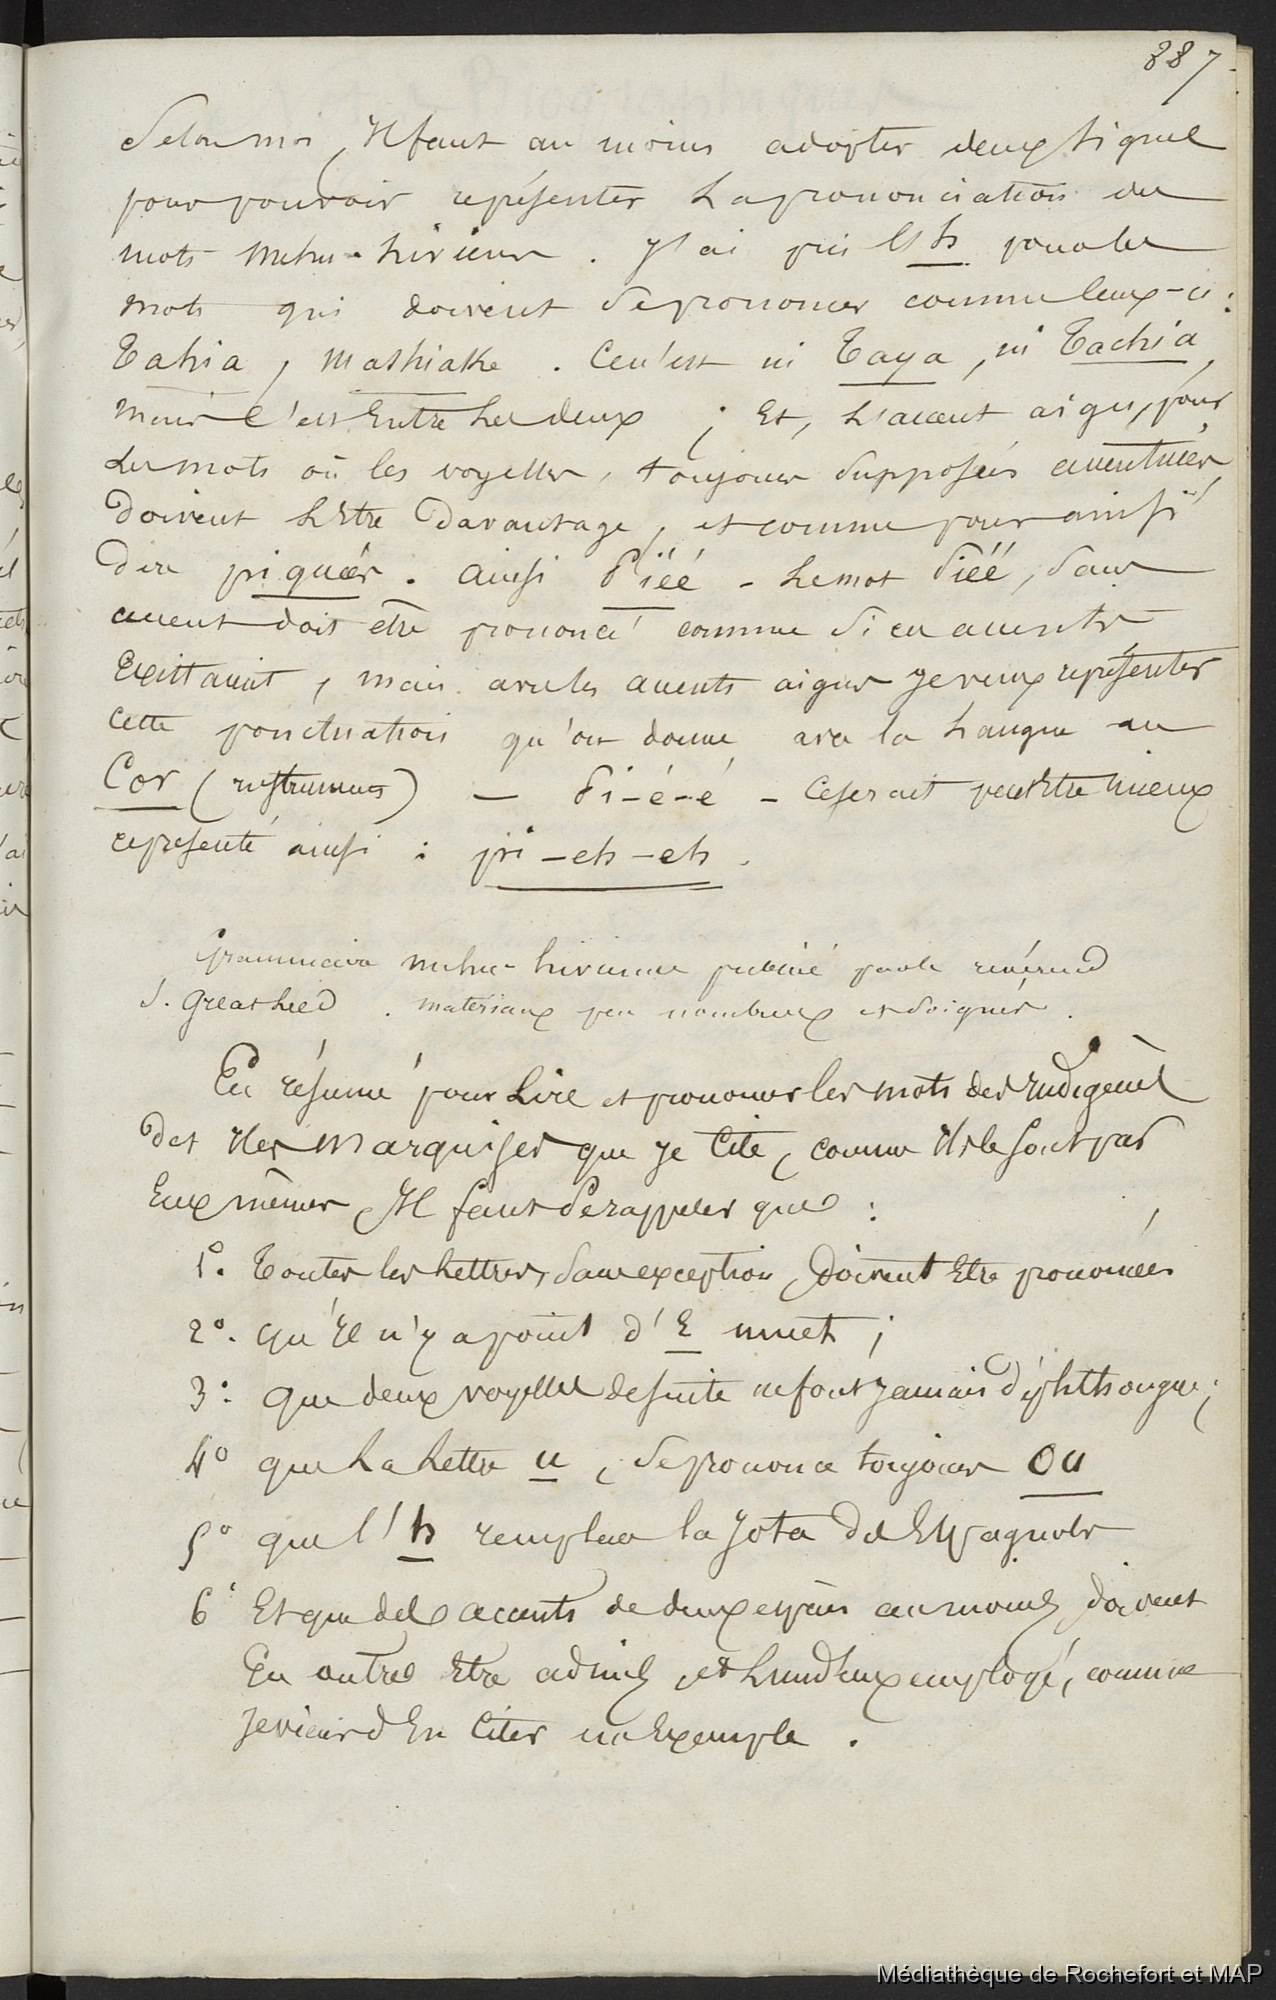 887
Selon moi, Il faut au moins adopter deux signes
pour pouvoir représenter La prononciation des
mots Nuhu-hiviens. J'ai pris l'h pour les
mots qui doivent se prononcer comme Ceux-ci:
Tahia, Mahiake. Ce n'est ni Taya, ni Tachia,
mais C'est Entre Les deux; Et, L'accent aigu, pour
Les mots où les voyelles, toujours supposées accentuées,
Doivent L'Etre Davantage, et comme pour ainsi
Dire piquées. Ainsi Piéé - Le mot Piéé, sans
accent doit être prononcé comme si ces accents
Existaient, mais avec les accents aigus je veux représenter
Cette ponctuation qu'on donne avec la Langue au
Cor (instrument) — Pi-é-é - Ce serait peut Etre mieux
représenté ainsi: pi-eh-eh.
Grammaire nuhu-hivienne publiée par le révérend
S. Greatheed. matériaux peu nombreux et soignés.
En résumé pour Lire et prononcer les mots des Indigènes
Des Iles Marquises que Je Cite, comme Ils le sont par
Eux mêmes, Il faut se rappeler que:
1º. Toutes les Lettres, sans exception, doivent Etre prononcées
2º. Qu'Il n'y a point d'E muet;
3º. Que deux voyelles de suite ne font Jamais diphthongue;
4º que La Lettre u, se prononce toujours OU
5º que l'h remplace la Jota Des Espagnols
6º Et que des accents de deux espèces au moins doivent
En outre Etre admis, et L'un d'Eux employé, comme
Je viens d'En Citer un Exemple.
Médiathèque de Rochefort et MAP